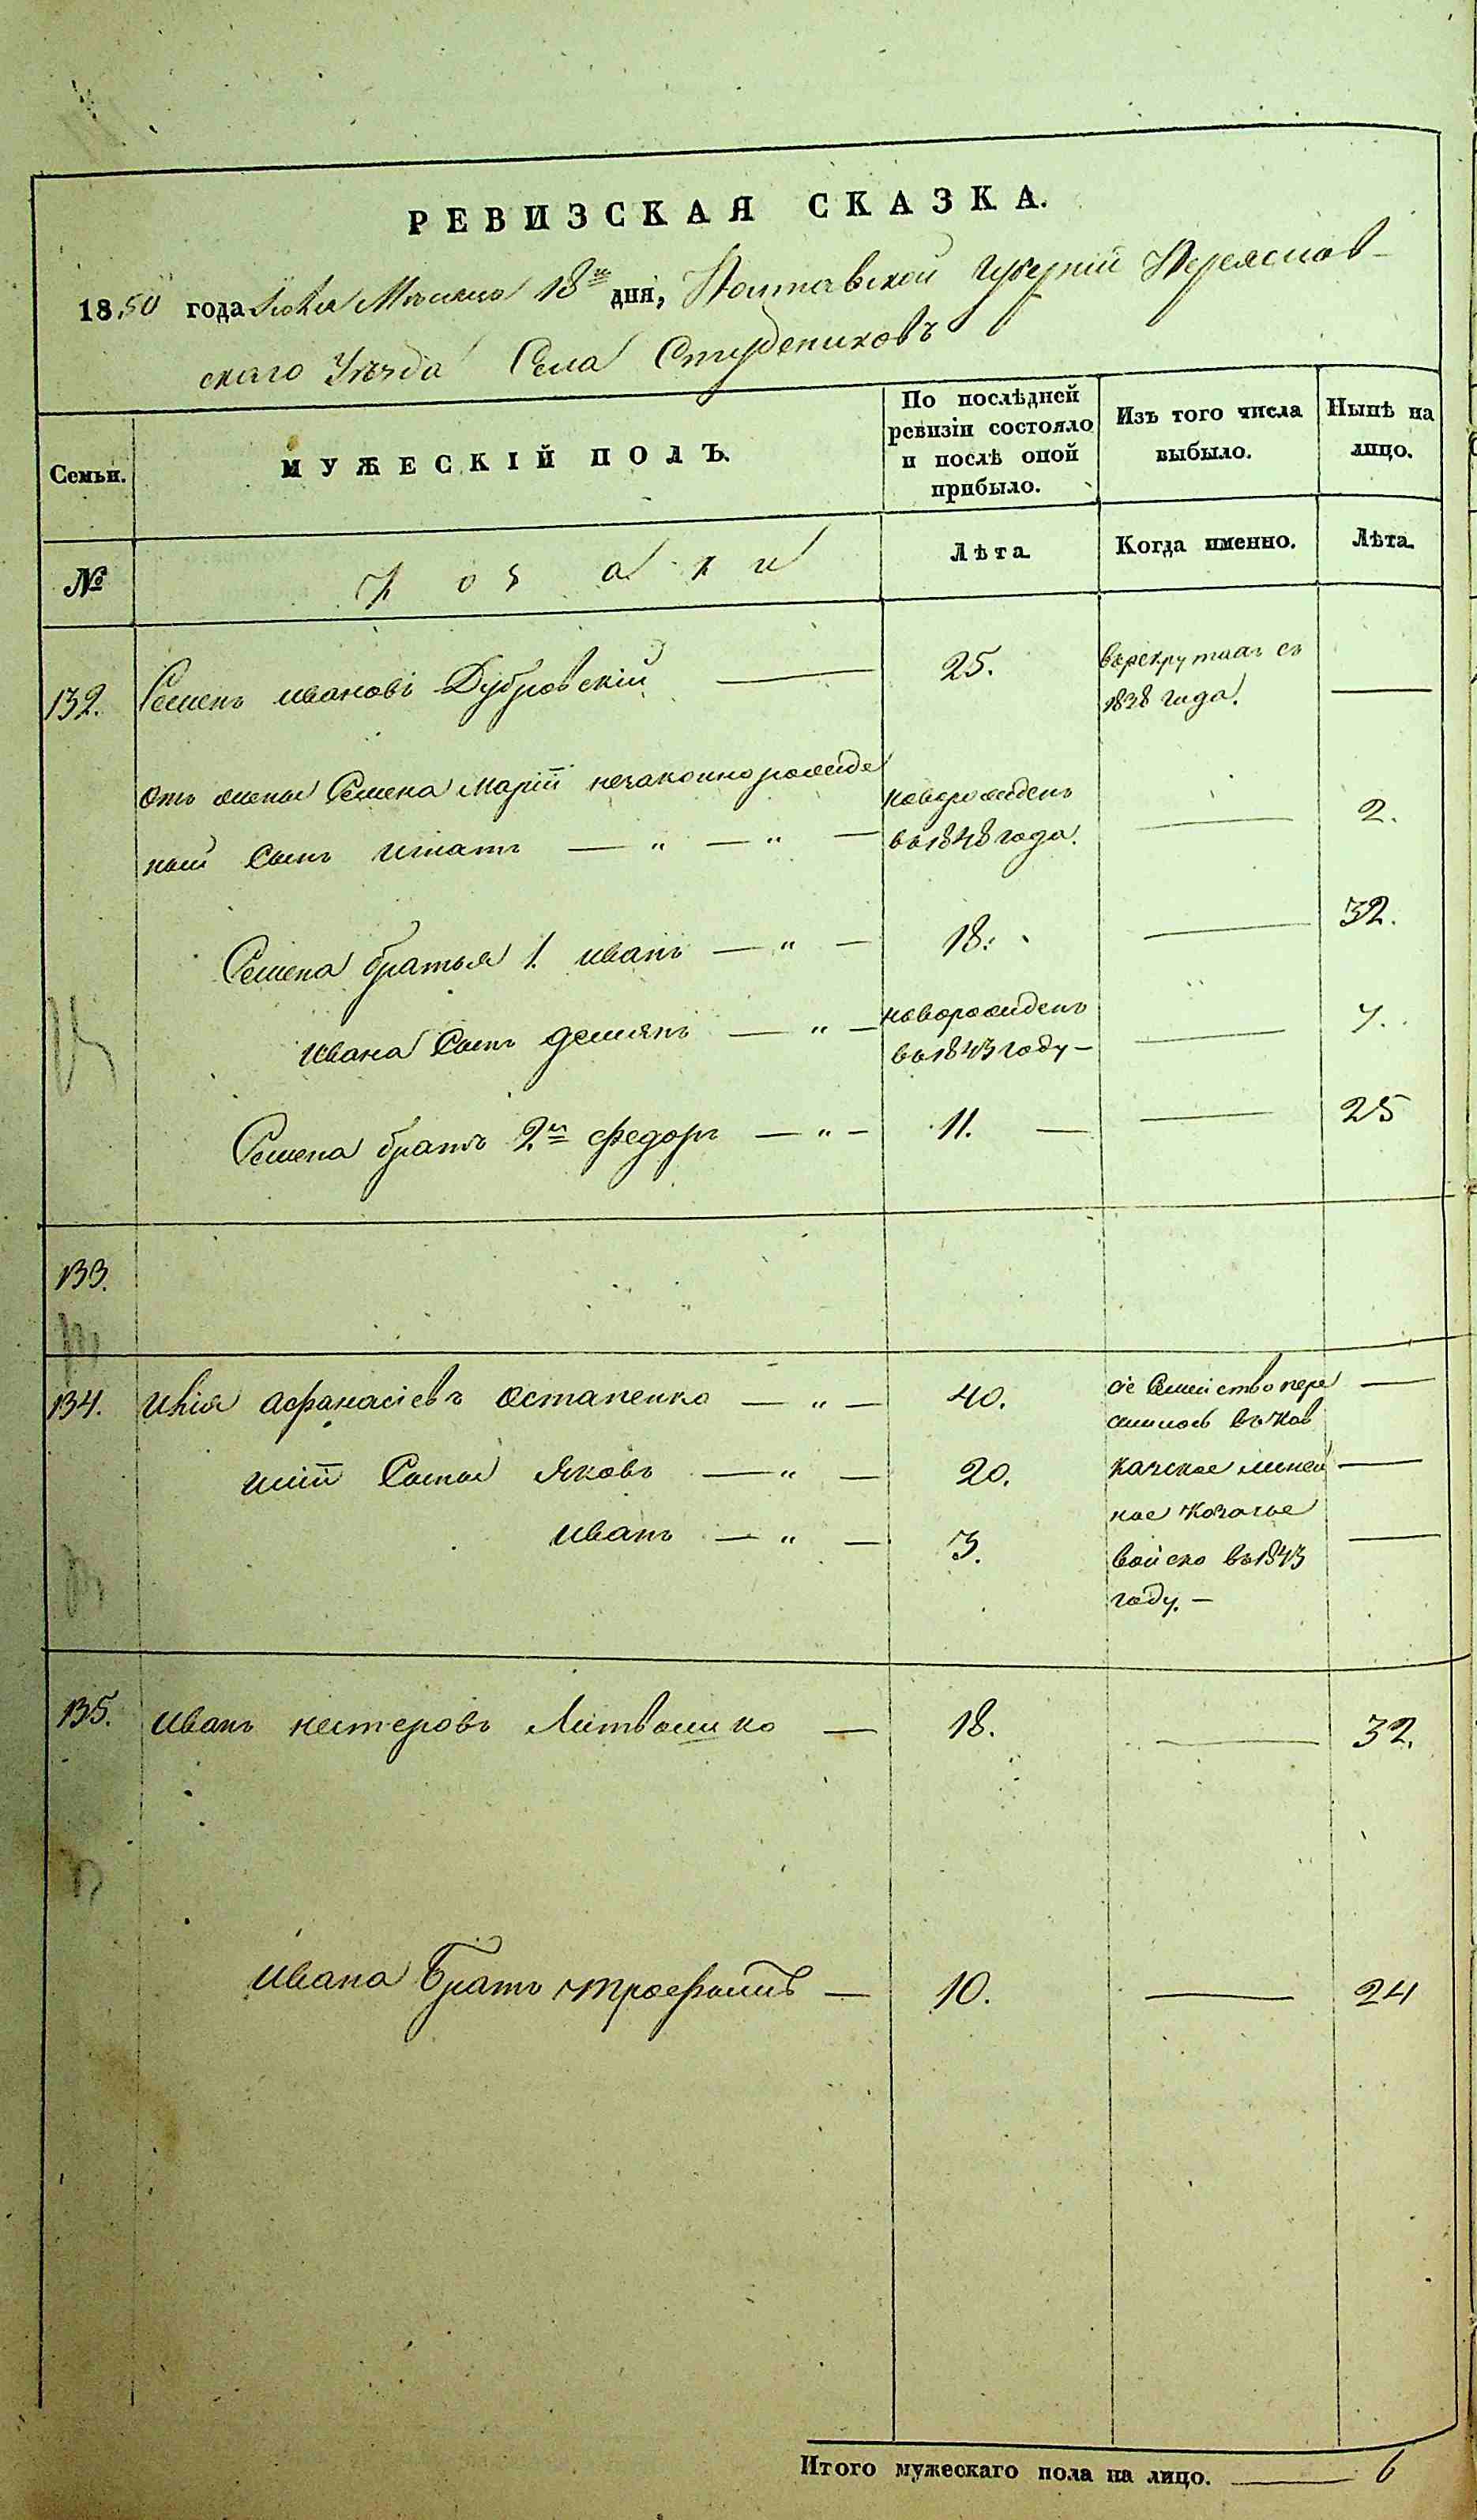 РЕВИЗСКАЯ СКАЗКА.
1850 года Мѣсяца 18го дня, Полтавской Губерніи Переяслав-
скаго Уѣзда Села Студениковъ
Семьи.
МУЖЕСКІЙ ПОЛЪ.
По послѣдней
ревизіи состояло
и послѣ оной
прибыло.
Изъ того числа
выбыло.
Нынѣ на
лицо.
№
Козаки
Лѣта
Когда именно.
Лѣта
132. Семенъ ивановъ Дубровскій — 25. въ рекрутахъ съ
1838 года. —
отъ жены Семена маріи незаконнорожде
новорожденъ
ный Сынъ игнатъ — „ — „ — въ 1848 года. — 2.
Семена братья 1. иванъ — „ — 18. — 32.
новорожденъ
ивана Сынъ демянъ — „ — въ 1843 году — — 7.
Семена братъ 2й федоръ — „ — 11. — — 25
133.
134. илія афанасіевъ остапенко — „ — 40. сіе Семейство пере —
силилось въ Кав
иліи Сыны Яковъ — „ — 20. казское линей —
ное Козачье
иванъ — „ — 3. войско въ 1843 —
году. —
135. иванъ нестеровъ Литвошко — 18. — 32.
ивана братъ трофимъ — 10. — 24
Итого мужескаго пола на лицо. — 6